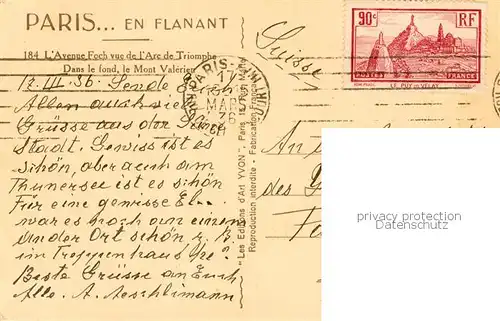 PARIS... EN FLANANT
184 L'Avenue Foch vue de l'Arc de Triomphe
Dans le fond, le Mont Valérien
17. III. 36. Sende Euch
Allen auch viele
Grüsse aus der
Stadt. Gewiss ist es
schön, aber auch am
Thunersee ist es schön
Für eine gewisse El...
war es noch an einem
andern Ort schön z. B.
im Treppenhaus he?
Beste Grüsse an Euch
Alle. A. Aeschlimann
PARIS
17
MAR
36
"Les Editions d'Art YVON", Paris
Reproduction interdite - Fabrication Française
Suisse
90c RF
POSTES FRANCE
LE PUY-en-VELAY
An
des
privacy protection
datenschutz